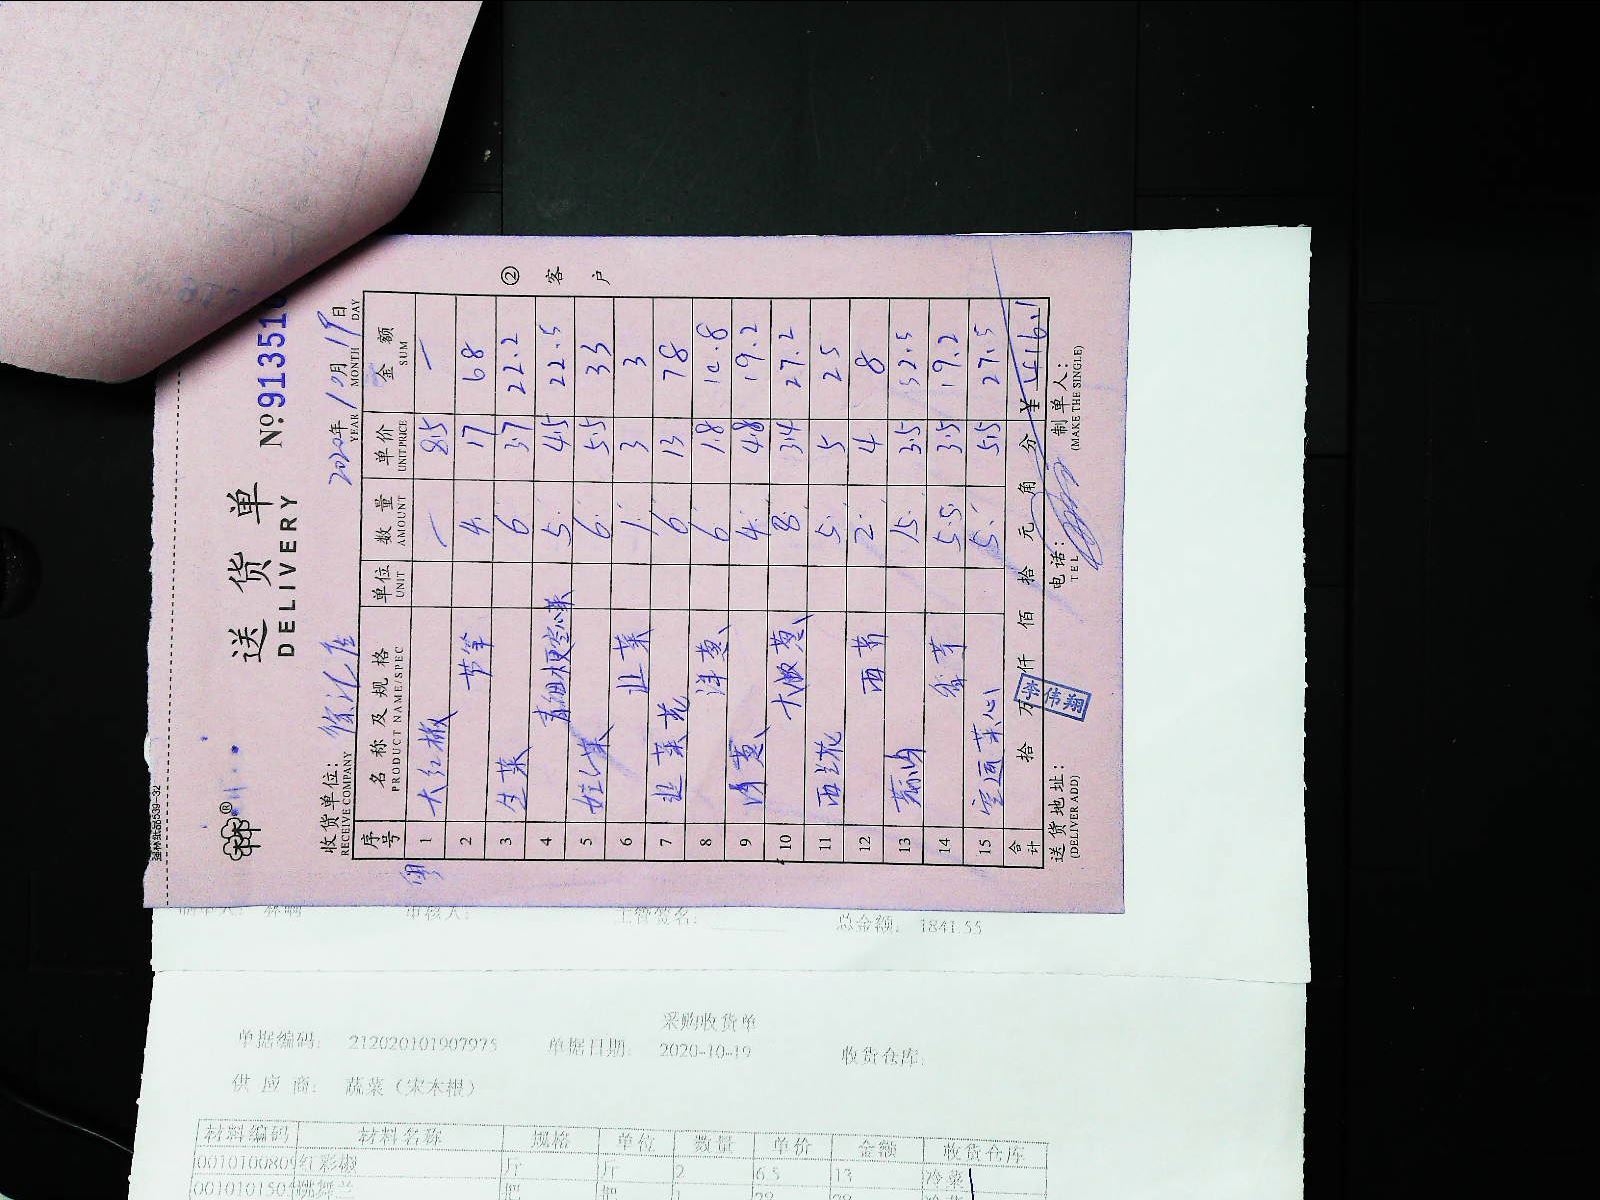 送 货 单
DELIVERY
№:913510
收货单位: 徐汇店
RECEIVE COMPANY
2020年10月19日
YEAR MONTH DAY
序号 名称及规格 单位 数量 单价 金额
PRODUCT NAME/SPEC UNIT AMOUNT UNIT PRICE SUM
1 大红椒 — 8.5 —
2 芦笋 4. 17 68
3 生菜 6. 3.7 22.2
4 青细梗空心菜 5. 4.5 22.5
5 娃娃菜 6. 5.5 33
6 韭菜 1. 3 3
7 韭菜花 6. 13 78
8 洋葱 6 1.8 10.8
9 香葱 4. 4.8 19.2
10 大椒葱 8. 3.4 27.2
11 西兰花 5. 5 25
12 西芹 2. 4 8
13 15. 3.5 52.5
14 香芹 5.5. 3.5 19.2
15 空运菜心 5. 5.5 27.5
合计 拾 万 仟 佰 拾 元 角 分 ¥ 416.1
李伟翔
送货地址: 电话: 制单人:
(DELIVER ADD) TEL (MAKE THE SINGLE)
② 客 户
制单人: 审核人: 主管签名: 总金额: 1841.55
采购收货单
单据编码: 212020101907975 单据日期: 2020-10-19 收货仓库:
供 应 商: 蔬菜(宋木根)
材料编码 材料名称 规格 单位 数量 单价 金额 收货仓库
0010100809 红彩椒 斤 斤 2 6.5 13 冷菜
001010150 跳舞兰 把 把 1 28 28 冷菜